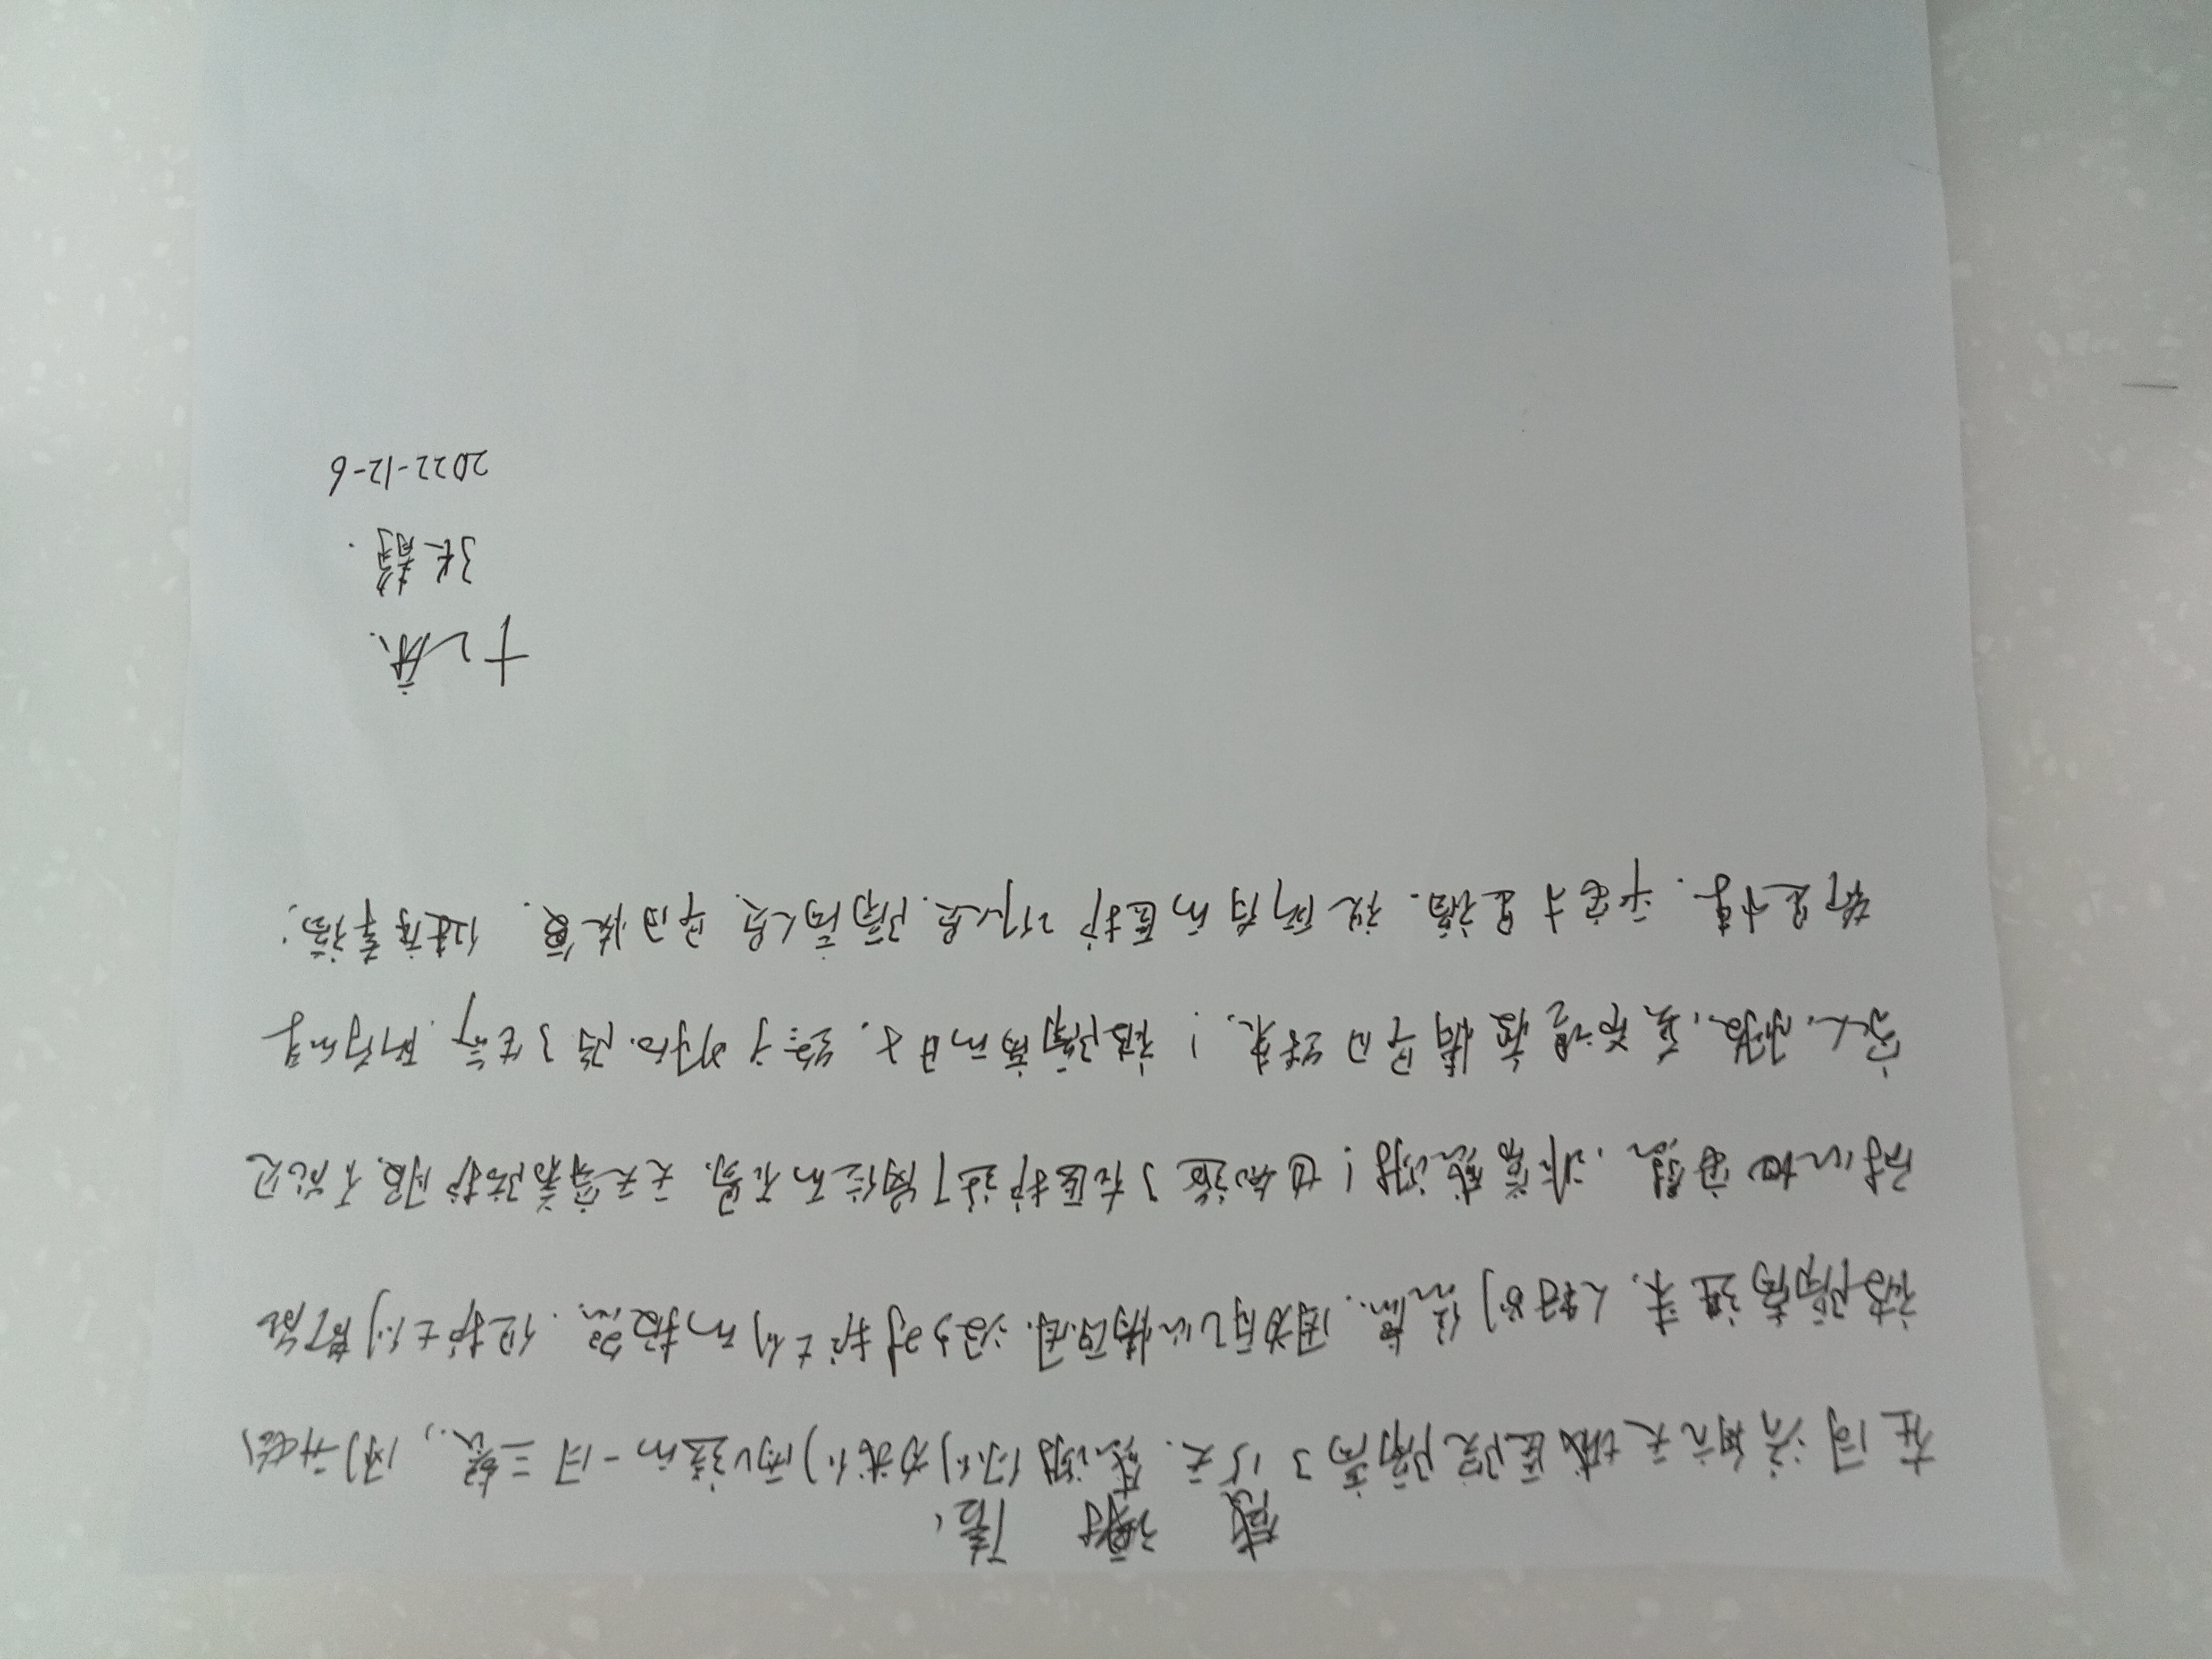 感谢信
在同济航天城医院隔离了15天.感谢你们为我们所送的一日三餐.,刚开始
被隔离进来.人特别焦虑.因为自己心情原因.没少对护士们的报怨.但护士们都能
耐心地安慰.非常感谢!也知道了在医护这个岗位的不易.天天穿着防护服.不能见
家人.朋友.真希望疫情早日结束.!被隔离的日子.终于明白.除了生命.所有的事
都是小事.平安才是福.祝所有的医护工作人员.隔离人员.早日恢复.健康幸福;
十二床.
张静.
2022-12-6